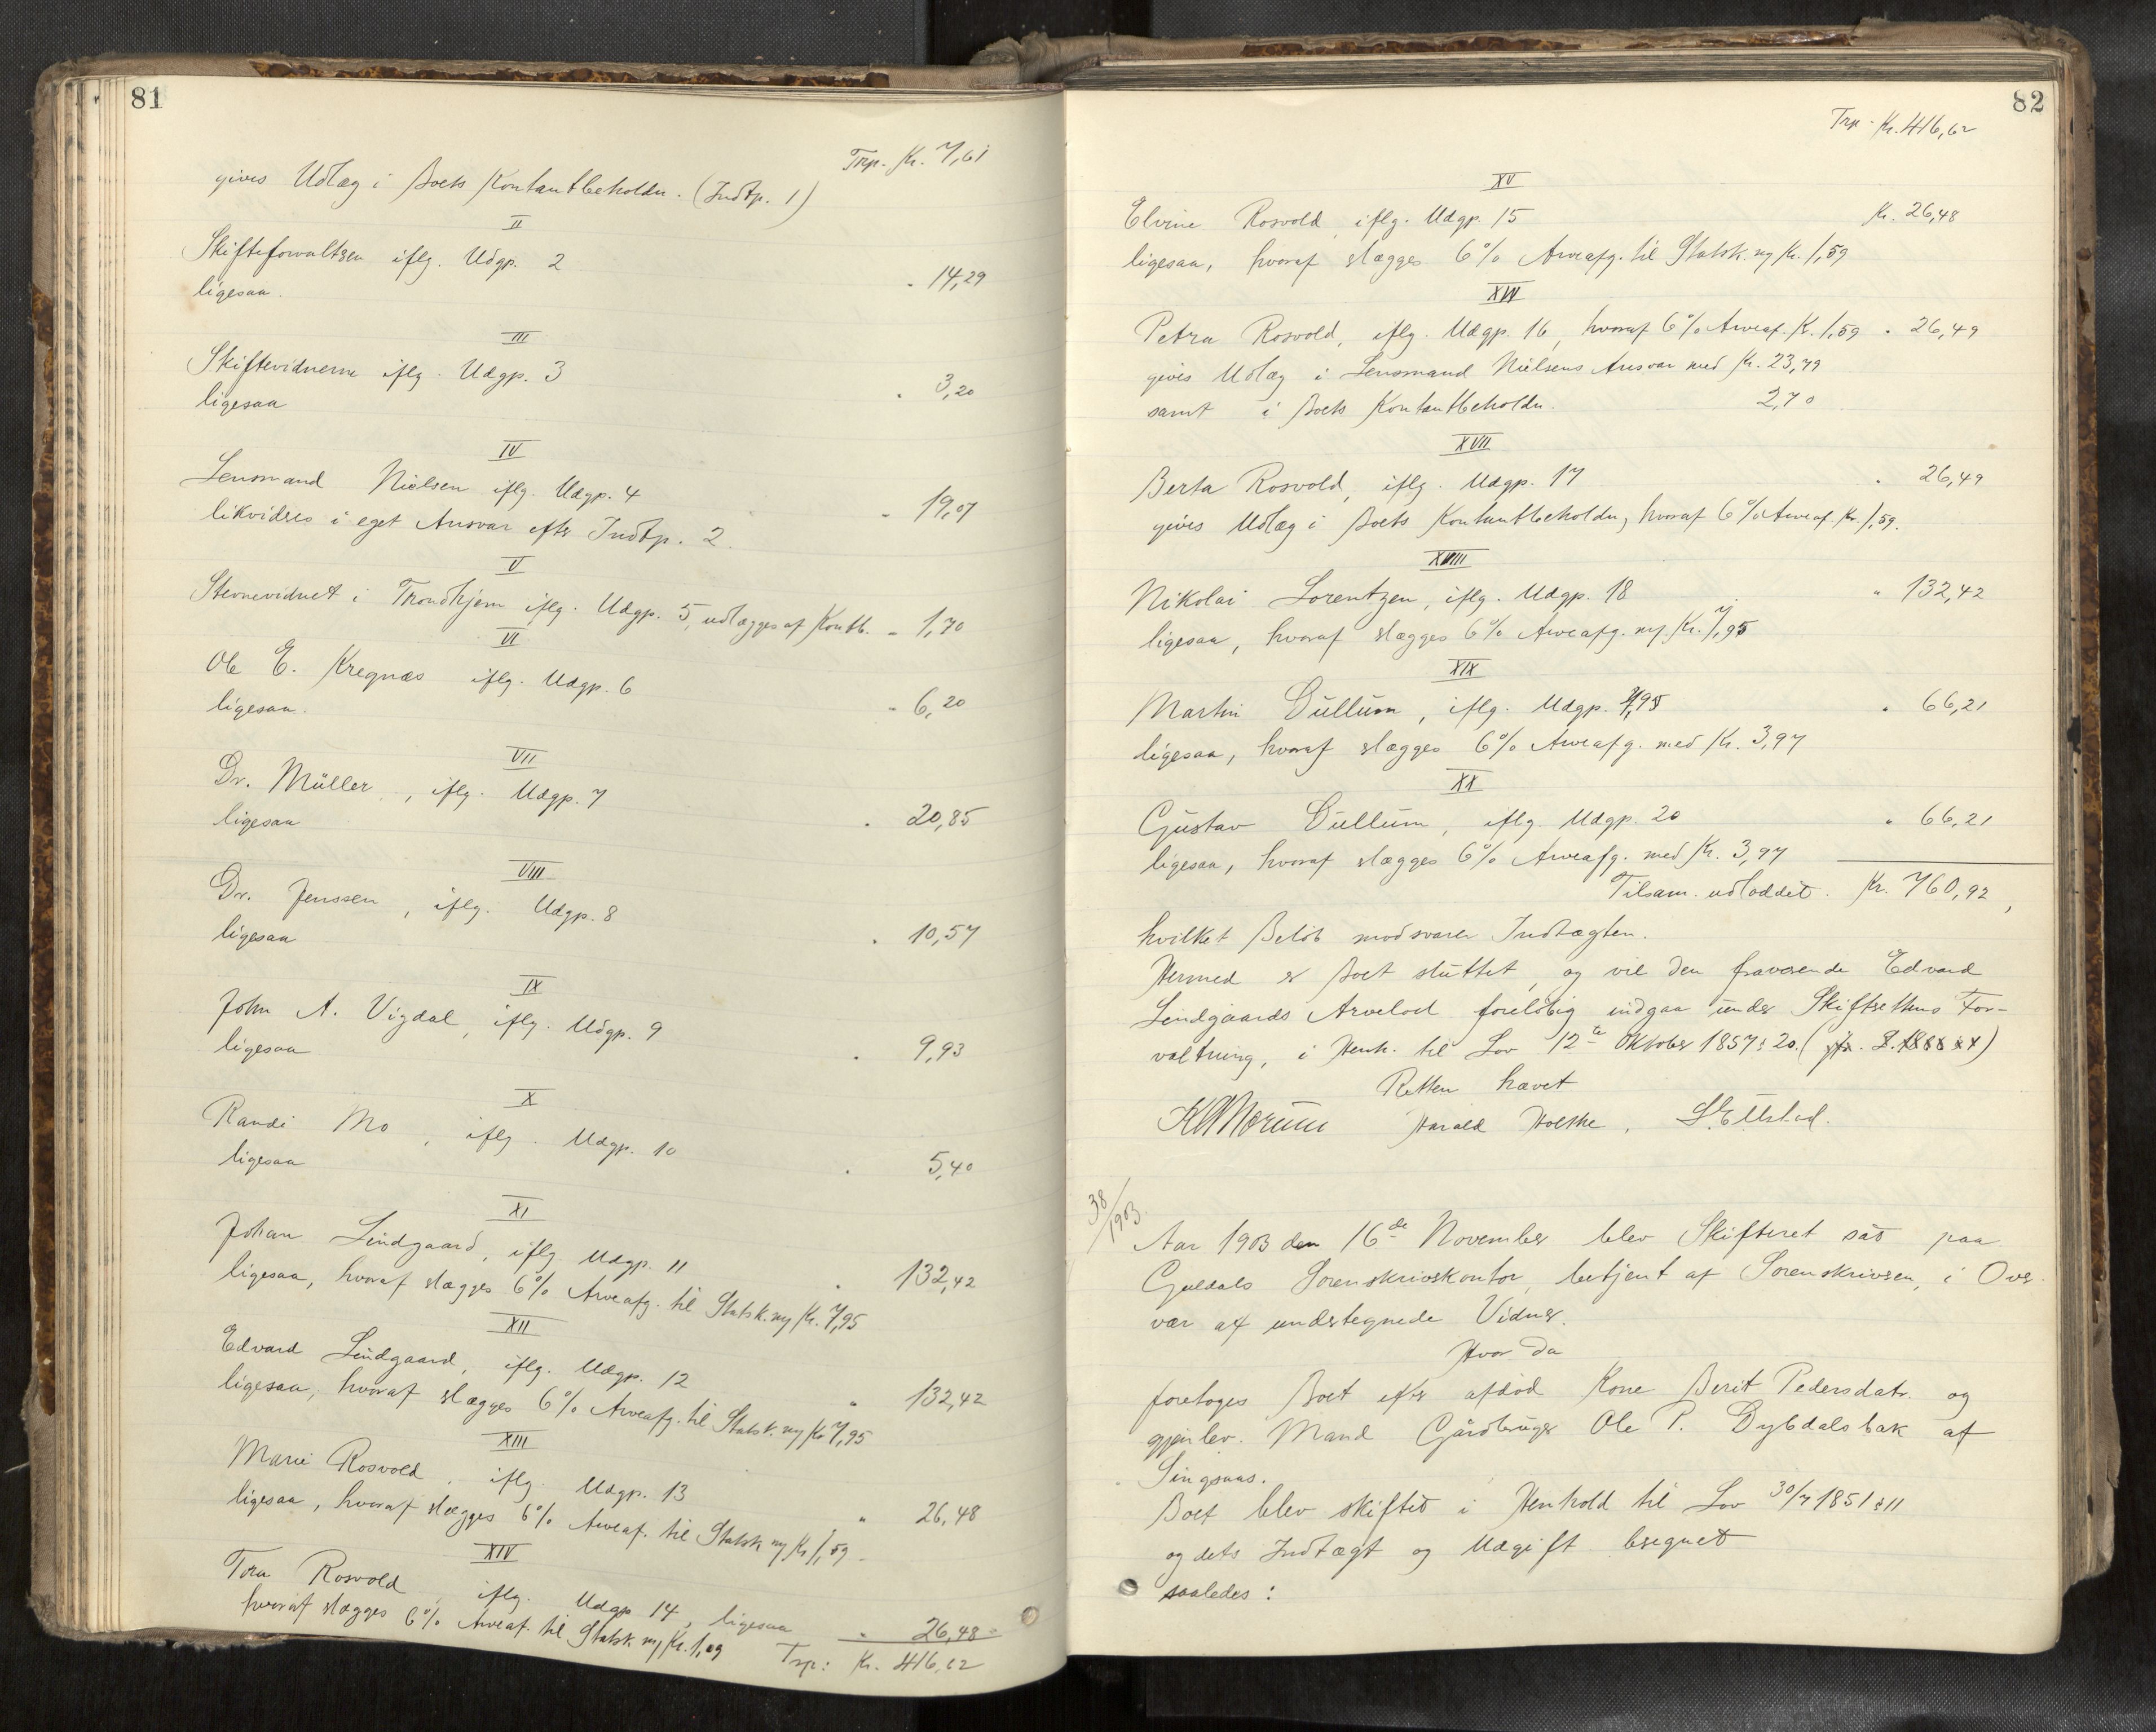 81
Trp. Kr. 7,61
gives Udlæg i Boets Kontantbeholdn. (Indtp. 1)
II
Skifteforvaltren iflg. Udgp. 2
ligesaa. " 14,29
III
Skiftevidnerne iflg. Udgp. 3
ligesaa " 3,20
IV
Lensmand Nielsen iflg. Udgp. 4 " 19,07
likvidres i eget Ansvar efter Indtp. 2.
V
Stevnevidnet i Trondhjem iflg. Udgp. 5, udlægges af Kontb. " 1,70
VI
Ole E. Kregnæs iflg. Udgp. 6
ligesaa. " 6,20
VII
Dr. Müller, iflg. Udgp. 7
ligesaa " 20,85
VIII
Dr. Jenssen, iflg. Udgp. 8
ligesaa " 10,57
IX
John A. Vigdal, iflg. Udgp. 9
ligesaa " 9,93
X
Randi Mo, iflg. Udgp. 10
ligesaa " 5,40
XI
Johan Lindgaard, iflg. Udgp. 11
ligesaa, hvoraf slægges 6% Arveafg. til Statsk. m/ Kr. 7,95 " 132,42
XII
Edvard Lindgaard, iflg. Udgp. 12
ligesaa, hvoraf slægges 6% Arveafg. til Statsk. m/ Kr 7,95 " 132,42
XIII
Marie Rosvold, iflg. Udgp. 13
ligesaa, hvoraf slægges 6% Arveaf. til Statsk m/ Kr 1,59 " 26,48
XIV
Tora Rosvold, iflg. Udgp 14, ligesaa " 26,48
hvoraf slægges 6% Arveaf. til Statsk m/ Kr. 1,59 Trp: Kr. 416,62
82
Trp. Kr. 416,62
XV
Elvine Rosvold, iflg. Udgp. 15 Kr. 26,48
ligesaa, hvoraf slægges 6% Arveafg. til Statsk. m/ Kr. 1,59
XVI
Petra Rosvold, iflg. Udgp. 16, hvoraf 6% Arveaf. K. 1,59 " 26,49
gives Udlæg i Lensmand Nielsens Ansvar med Kr. 23,79
samt i Boets Kontantbeholdn. 2,70
XVII
Berta Rosvold, iflg. Udgp. 17 " 26,49
gives Udlæg i Boets Kontantbeholdn, hvoraf 6% Arveaf. Kr. 1,59.
XVIII
Nikolai Lorentzen, iflg. Udgp. 18 " 132,42
ligesaa, hvoraf slægges 6% Arveafg. m/ Kr. 7,95
XIX
Martin Dullum, iflg. Udgp. " 66,21
ligesaa, hvoraf slægges 6% Arveafg. med Kr. 3,97
XX
Gustav Dullum, iflg. Udgp. 20 " 66,21
ligesaa, hvoraf slægges 6% Arveafg. med Kr. 3,97
Tilsam. udloddet. Kr. 760,92,
hvilket Beløb modsvarer Indtægten.
Hermed er Boet sluttet, og vil den fraværende Edvard
Lindgaards Arvelod foreløbig indgaa under Skifterettens For-
valtning, i Henh. til Lov 12te Oktober 1857 § 20.
Retten hævet
Harald
38/1903.
Aar 1903 den 16de November blev Skifteret sat paa
Guldals Sorenskriverkontor, betjent af Sorenskriveren, i Over
vær af undertegnede Vidner.
Hvor da
foretoges Boet efter afdød Kone Berit Pedersdatr. og
gjenlev. Mand Gårdbruger Ole P. Dybdalsbak af
Singsaas.
Boet blev skiftet i Henhold til Lov 30/7 1851 § 11
og dets Indtægt og Udgift beregnet
saaledes: